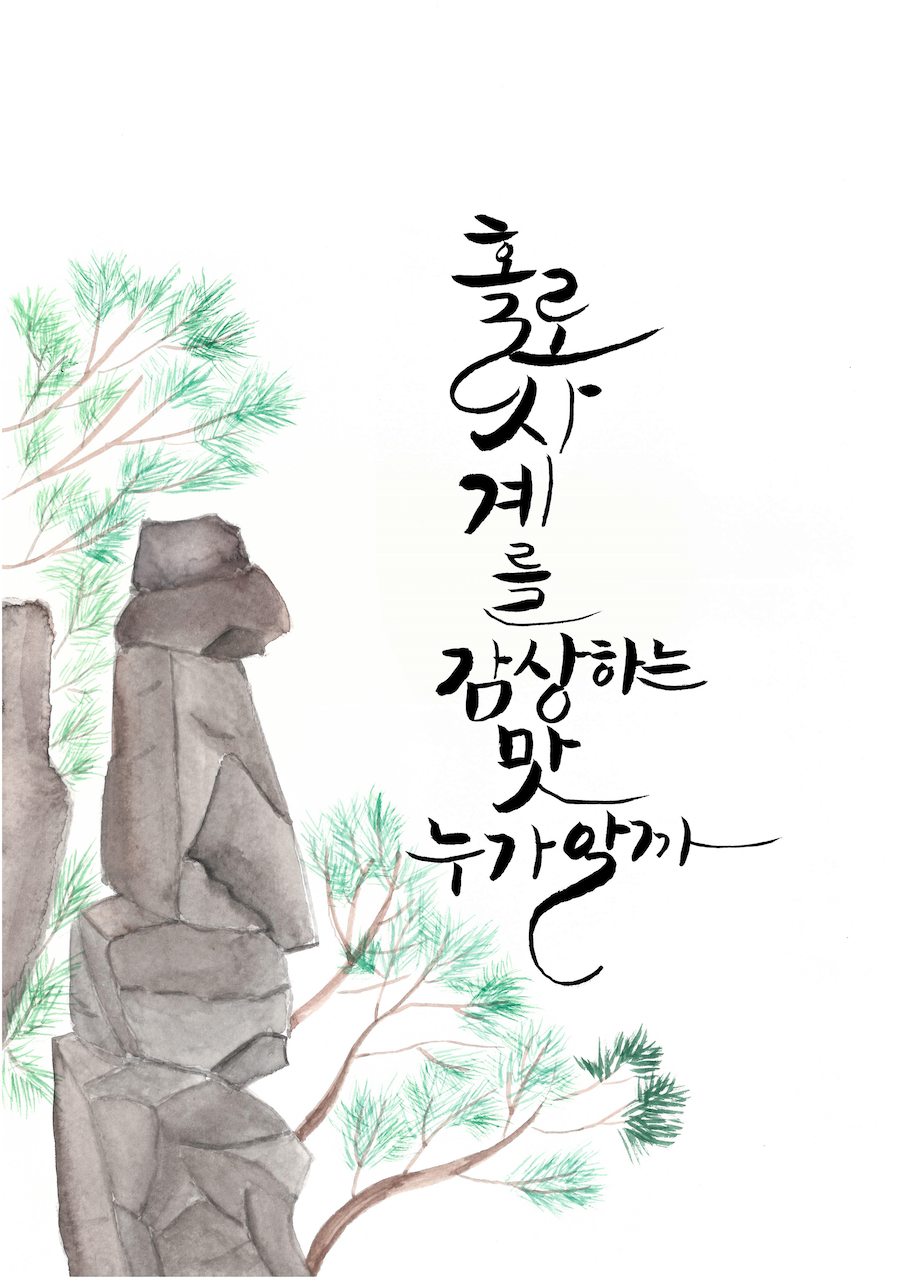 홀로
사
계
를
감상하는
맛
누가 알까